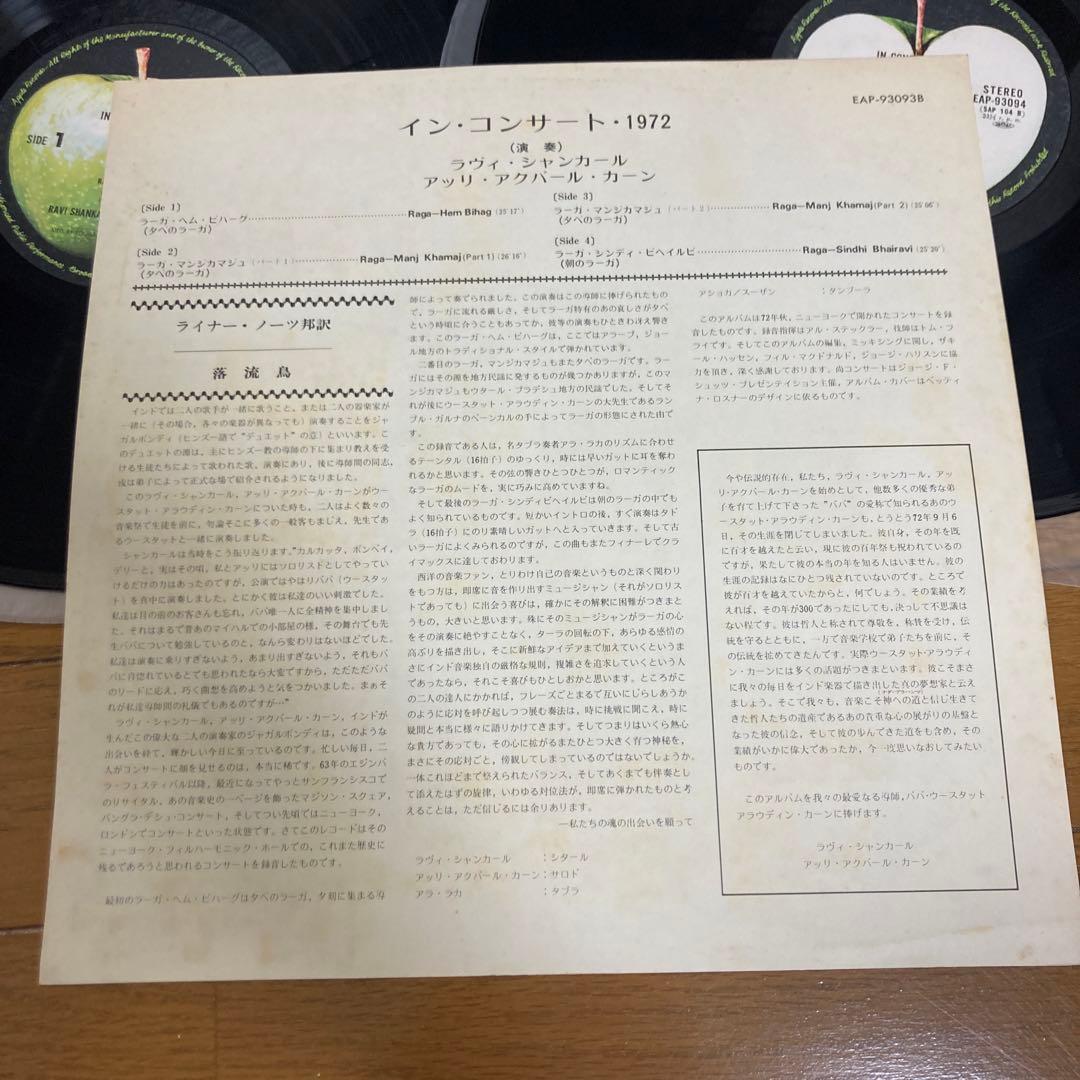 EAP-93093B
イン・コンサート・1972
(演 奏)
ラヴィ・シャンカール
アッリ・アクバール・カーン
(Side 1)
ラーガ・ヘム・ビハーグ Raga—Hem Bihag(25'17")
(夕べのラーガ)
(Side 2)
ラーガ・マンジカマジュ(パート1) Raga—Manj Khamaj(Part 1)(26'16")
(夕べのラーガ)
(Side 3)
ラーガ・マンジカマジュ(パート2) Raga—Manj Khamaj(Part 2)(25'06")
(夕べのラーガ)
(Side 4)
ラーガ・シンディ・ビヘイルビ Raga—Sindhi Bhairavi(25'20")
(朝のラーガ)
ライナー・ノーツ邦訳
落 流 鳥
インドでは二人の歌手が一緒に歌うこと、または二人の器楽家が
一緒に(その場合、各々の楽器が異なっても)演奏することをジャ
ガルボンディ(ヒンズー語で“デュエット”の意)といいます。こ
のデュエットの源は、主にヒンズー教の導師の下に集まり教えを受
ける生徒たちによって歌われた歌、演奏にあり、後に導師間の同志、
或は弟子によって正式な場で紹介されるようになりました。
このラヴィ・シャンカール、アッリ・アクバール・カーンがウー
スタット・アラウディン・カーンについた時も、二人はよく数々の
音楽祭で生徒を前に、勿論そこに多くの一般客もまじえ、先生であ
るウースタットと一緒に演奏しました。
シャンカールは当時をこう振り返ります。“カルカッタ、ボンベイ、
デリーと、実はその頃、私とアッリにはソロリストとしてやってい
けるだけの力はあったのですが、公演ではやはりババ(ウースタッ
ト)を真中に演奏しました。とにかく彼は私達のいい刺激でした。
私達は目の前のお客さんも忘れ、ババ唯一人に全精神を集中しまし
た。それはまるで昔あのマイハルでの小部屋の様、その舞台でも先
生ババについて勉強しているのと、なんら変わりはないほどでした。
私達は演奏に乗りすぎないよう、あまり出すぎないよう、それもバ
バに育惚れているとでも思われたなら大変ですから、ただただババ
のリードに応え、巧く曲想を高めようと気をつかいました。まぁそ
れが私達導師間の礼儀でもあるのですが…”
ラヴィ・シャンカール、アッリ・アクバール・カーン、インドが
生んだこの偉大な二人の演奏家のジャガルボンディは、このような
出会いを経て、輝かしい今日に至っているのです。忙しい毎日、二
人がコンサートに顔を見せるのは、本当に稀です。63年のエジンバ
ラ・フェスティバル以降、最近になってやっとサンフランシスコで
のリサイタル、あの音楽史の一ページを飾ったマジソン・スクェア、
バングラ・デシュ・コンサート、そしてつい先頃ではニューヨーク、
ロンドンでコンサートといった状態です。さてこのレコードはその
ニューヨーク・フィルハーモニック・ホールでの、これまた歴史に
残るであろうと思われるコンサートを録音したものです。
最初のラーガ・ヘム・ビハーグは夕べのラーガ、夕刻に集まる導
師によって奏でられました。この演奏はこの導師に捧げられたもの
で、ラーガに流れる厳しさ、そしてラーガ特有のあの哀しさが夕べ
という時頃に合うこともあってか、彼等の演奏もひときわ冴え響き
ます。このラーガ・ヘム・ビハーグは、ここではアラープ、ジョー
ル地方のトラディショナル・スタイルで弾かれています。
二番目のラーガ、マンジカマジュもまた夕べのラーガです。ラー
ガにはその源を地方民謡に発するものが幾つかありますが、このマ
ンジカマジュもウタール・プラデシュ地方の民謡でした。そしてそ
れが後にウースタット・アラウディン・カーンの大先生であるランプ
ル・ガルナのベーンカルの手によってラーガの形態にされた由で
す。
この録音である人は、名タブラ奏者アラ・ラカのリズムに合わせ
るテーンタル(16拍子)のゆっくり、時には早いガットに耳を奪わ
れるかと思います。その弦の響きひとつひとつが、ロマンティック
なラーガのムードを、実に巧みに高めていますね。
そして最後のラーガ・シンディビヘイルビは朝のラーガの中でも
よく知られているものです。短かいイントロの後、すぐ演奏はタド
ラ(16拍子)にのり素晴しいガットへと入っていきます。そして古
いラーガによくみられるのですが、この曲もまたフィナーレでクラ
イマックスに達しております。
西洋の音楽ファン、とりわけ自己の音楽というものと深く関わり
をもつ方は、即席に音を作り出すミュージシャン(それがソロリス
トであっても)に出会う喜びは、確かにその解釈に困難がつきまと
うもの、大きいと思います。殊にそのミュージシャンがラーガの心
をその演奏に絶やすことなく、ターラの回転の下、あらゆる感情の
高ぶりを描き出し、そこに新鮮なアイデアまで加えていくというま
さにインド音楽独自の厳格な規則、複雑さを追求していくという人
であったなら、それこそ喜びもひとしおかと思います。ところがこ
の二人の達人にかかれば、フレーズごとまるで互いにじらしあうか
のように応対を呼び起しつつ展む奏法は、時に挑戦に聞こえ、時に
疑問と本当に様々に語りかけてきます。そしてつまりはいくら熱心
な貴方であっても、その心に拡がるまたひとつ大きく育つ神秘を、
まさにその応対ごと、傍観してしまっているのではないでしょうか。
一体これほどまで整えられたバランス、そしてあくまでも伴奏とし
て添えたはずの旋律、いわゆる対位法が、即席に弾かれたものと考
えることは、ただ信じるには余りあります。
—私たちの魂の出会いを願って
ラヴィ・シャンカール :シタール
アッリ・アクバール・カーン:サロド
アラ・ラカ :タブラ
アショカ/スーザン :タンブーラ
このアルバムは72年秋、ニューヨークで開かれたコンサートを録
音したものです。録音指揮はアル・ステックラー、技師はトム・フ
ライです。そしてこのアルバムの編集、ミッキシングに関し、ザキ
ール・ハッセン、フィル・マクドナルド、ジョージ・ハリスンに協
力を頂き、深く感謝しております。尚コンサートはジョージ・F・
シュッツ・プレゼンテイション主催、アルバム・カバーはベッティ
ナ・ロスナーのデザインに依るものです。
今や伝説的存在、私たち、ラヴィ・シャンカール、アッ
リ・アクバール・カーンを始めとして、他数多くの優秀な弟
子を育て上げて下さった“ババ”の愛称で知られるあのウ
ースタット・アラウディン・カーンも、とうとう72年9月6
日、その生涯を閉じてしまいました。彼自身、その年を既
に百才を越えたと云い、現に彼の百年祭も祝われているの
ですが、果たして彼の本当の年を知る人はいません。彼の
生涯の記録はなにひとつ残されていないのです。ところで
彼が百才を越えていたからと、何でしょう。その業績を考
えれば、その年が300であったにしても、決っして不思議は
ない程です。彼は哲人と称されて尊敬を、称賛を受け、伝
統を守るとともに、一方で音楽学校で弟子たちを前に、そ
の伝統を拡めてきたんです。実際ウースタット・アラウディ
ン・カーンには多くの話題がつきまといます。彼こそまさ
に我々の毎日をインド楽器で描き出した真の夢想家と云え
ましょう。そこで我々も、音楽こそ神への道と信じ生きて
きた哲人たちの遺産であるあの貴重な心の展がりの基盤と
なった彼の信念、そして彼の歩んできた道をも含め、その
業績がいかに偉大であったか、今一度思いなおしてみたい
ものです。
このアルバムを我々の最愛なる導師、ババ・ウースタット
アラウディン・カーンに捧げます。
ラヴィ・シャンカール
アッリ・アクバール・カーン
SIDE 1
IN
RAVI SHANKA
IN CON
STEREO
EAP-93094
(SAP 104 B)
33⅓ r. p. m.